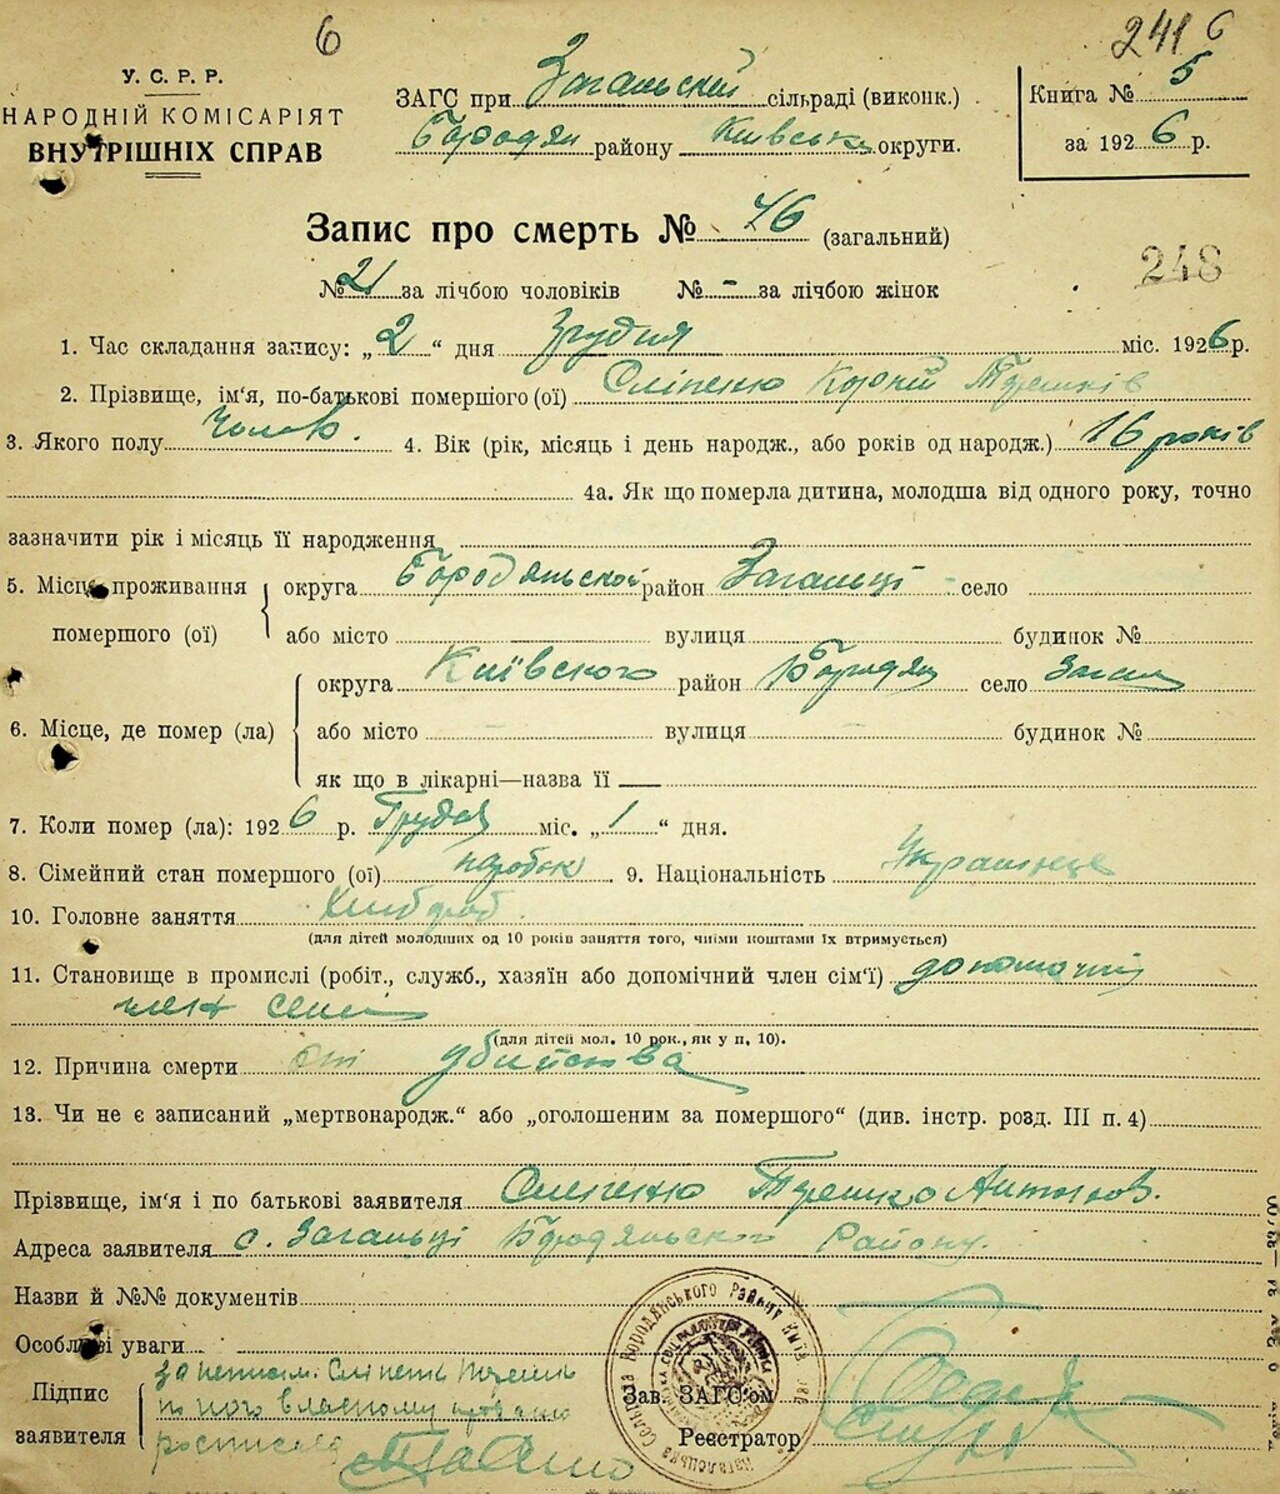 6
241 6
У. С. Р. Р.
НАРОДНІЙ КОМІСАРІЯТ
ВНУТРІШНІХ СПРАВ
ЗАГС при Загальській сільраді (виконк.)
Бородян району Київськ округи.
Книга № 5
за 1926 р.
Запис про смерть № 46 (загальний)
248
№ 21 за лічбою чоловіків № - за лічбою жінок
1. Час складання запису: „2“ дня Грудня міс. 1926 р.
2. Прізвище, ім'я, по-батькові помершого (ої) Сліпенко Корній Терешків
3. Якого полу Чолов. 4. Вік (рік, місяць і день народж., або років од народж.) 16 років
4а. Як що померла дитина, молодша від одного року, точно
зазначити рік і місяць її народження
5. Місце проживання помершого (ої) округа Бородяньской район Загальці село
або місто вулиця будинок №
6. Місце, де помер (ла) округа Київского район Бородян село Загал
або місто вулиця будинок №
як що в лікарні—назва її —
7. Коли помер (ла): 1926 р. Грудня міс. „1“ дня.
8. Сімейний стан помершого (ої) паробок 9. Національність Українець
10. Головне заняття Хлібороб
(для дітей молодших од 10 років заняття того, чиїми коштами їх втримується)
11. Становище в промислі (робіт., служб., хазяїн або допомічний член сім'ї) допомочній
член семї
(для дітей мол. 10 рок., як у п. 10).
12. Причина смерти От убийства
13. Чи не є записаний „мертвонародж.“ або „оголошеним за помершого“ (див. інстр. розд. III п. 4)
Прізвище, ім'я і по батькові заявителя Слипенко Терешко Антонов.
Адреса заявителя с. Загальці Бородяньского Району.
Назви й №№ документів
Особливі уваги
Підпис заявителя
за неписьм. Сліпенк Терешк
по його власному проханню
росписався
Зав. ЗАГС'ом
Реєстратор